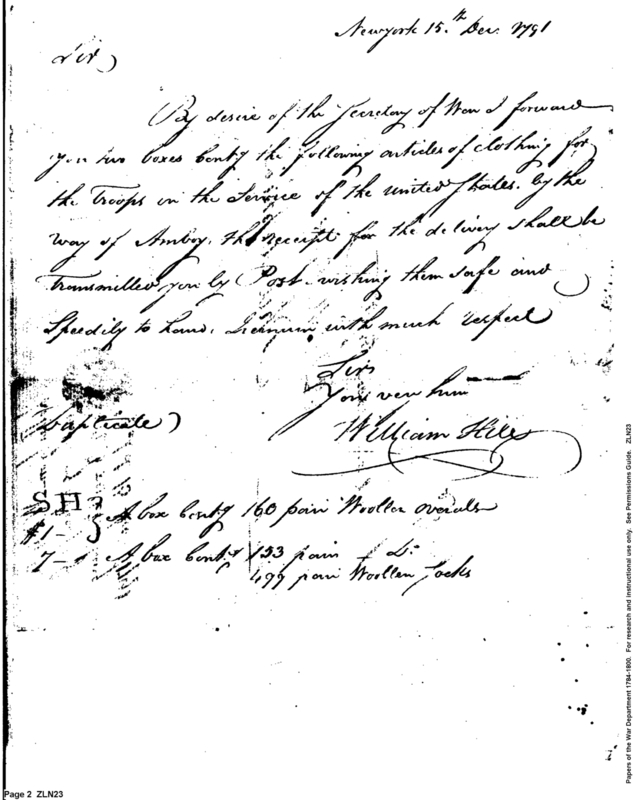 Newyork 15.th Dec. 1791
Sir
By desire of the Secretary of War I forward
you two boxes Contg the following articles of clothing for
the Troops in the Service of the united States. by the
way of Amboy. the receipt for the delivery shall be
Transmitted you by Post. wishing them safe and
Speedily to hand. I remain, with much respect
Sir
Your very hum
(Duplicate)
William Hill
SH
#1- A box Contg 160 pair Woollen overalls
7- A box Contg 133 pair Do
499 pair Woollen Socks
Page 2 ZLN23
Papers of the War Department 1784-1800. For research and instructional use only. See Permissions Guide. ZLN23